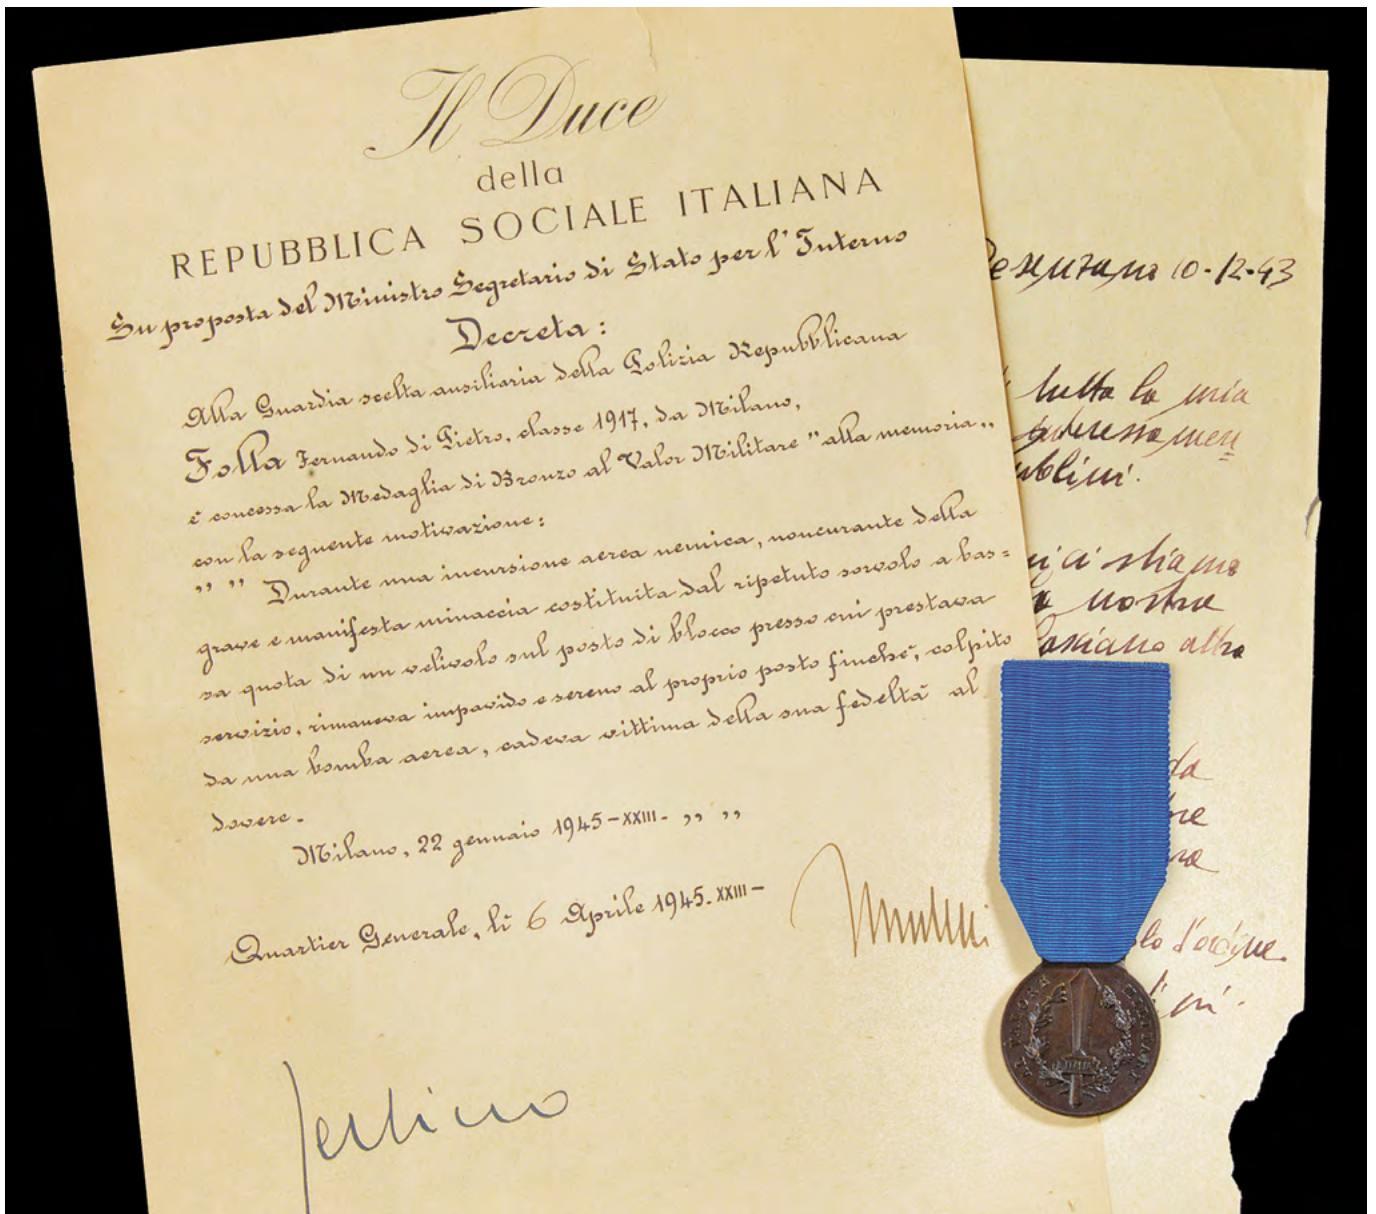 Il Duce
della
REPUBBLICA SOCIALE ITALIANA
Su proposta del Ministro Segretario di Stato per l'Interno
Decreta:
Alla Guardia scelta ausiliaria della Polizia Repubblicana
Folla Fernando di Pietro, classe 1917, da Milano,
è concessa la Medaglia di Bronzo al Valor Militare "alla memoria„
con la seguente motivazione:
" " Durante una incursione aerea nemica, noncurante della
grave e manifesta minaccia costituita dal ripetuto sorvolo a bas=
sa quota di un velivolo sul posto di blocco presso cui prestava
servizio, rimaneva impavido e sereno al proprio posto finchè, colpito
da una bomba aerea, cadeva vittima della sua fedeltà al
dovere.
Milano, 22 gennaio 1945-XXIII- " "
Quartier Generale, li 6 Aprile 1945.XXIII-
10-12-43
tutta la mia
nostra
altro
d'ordine.
AL VALORE MILITARE